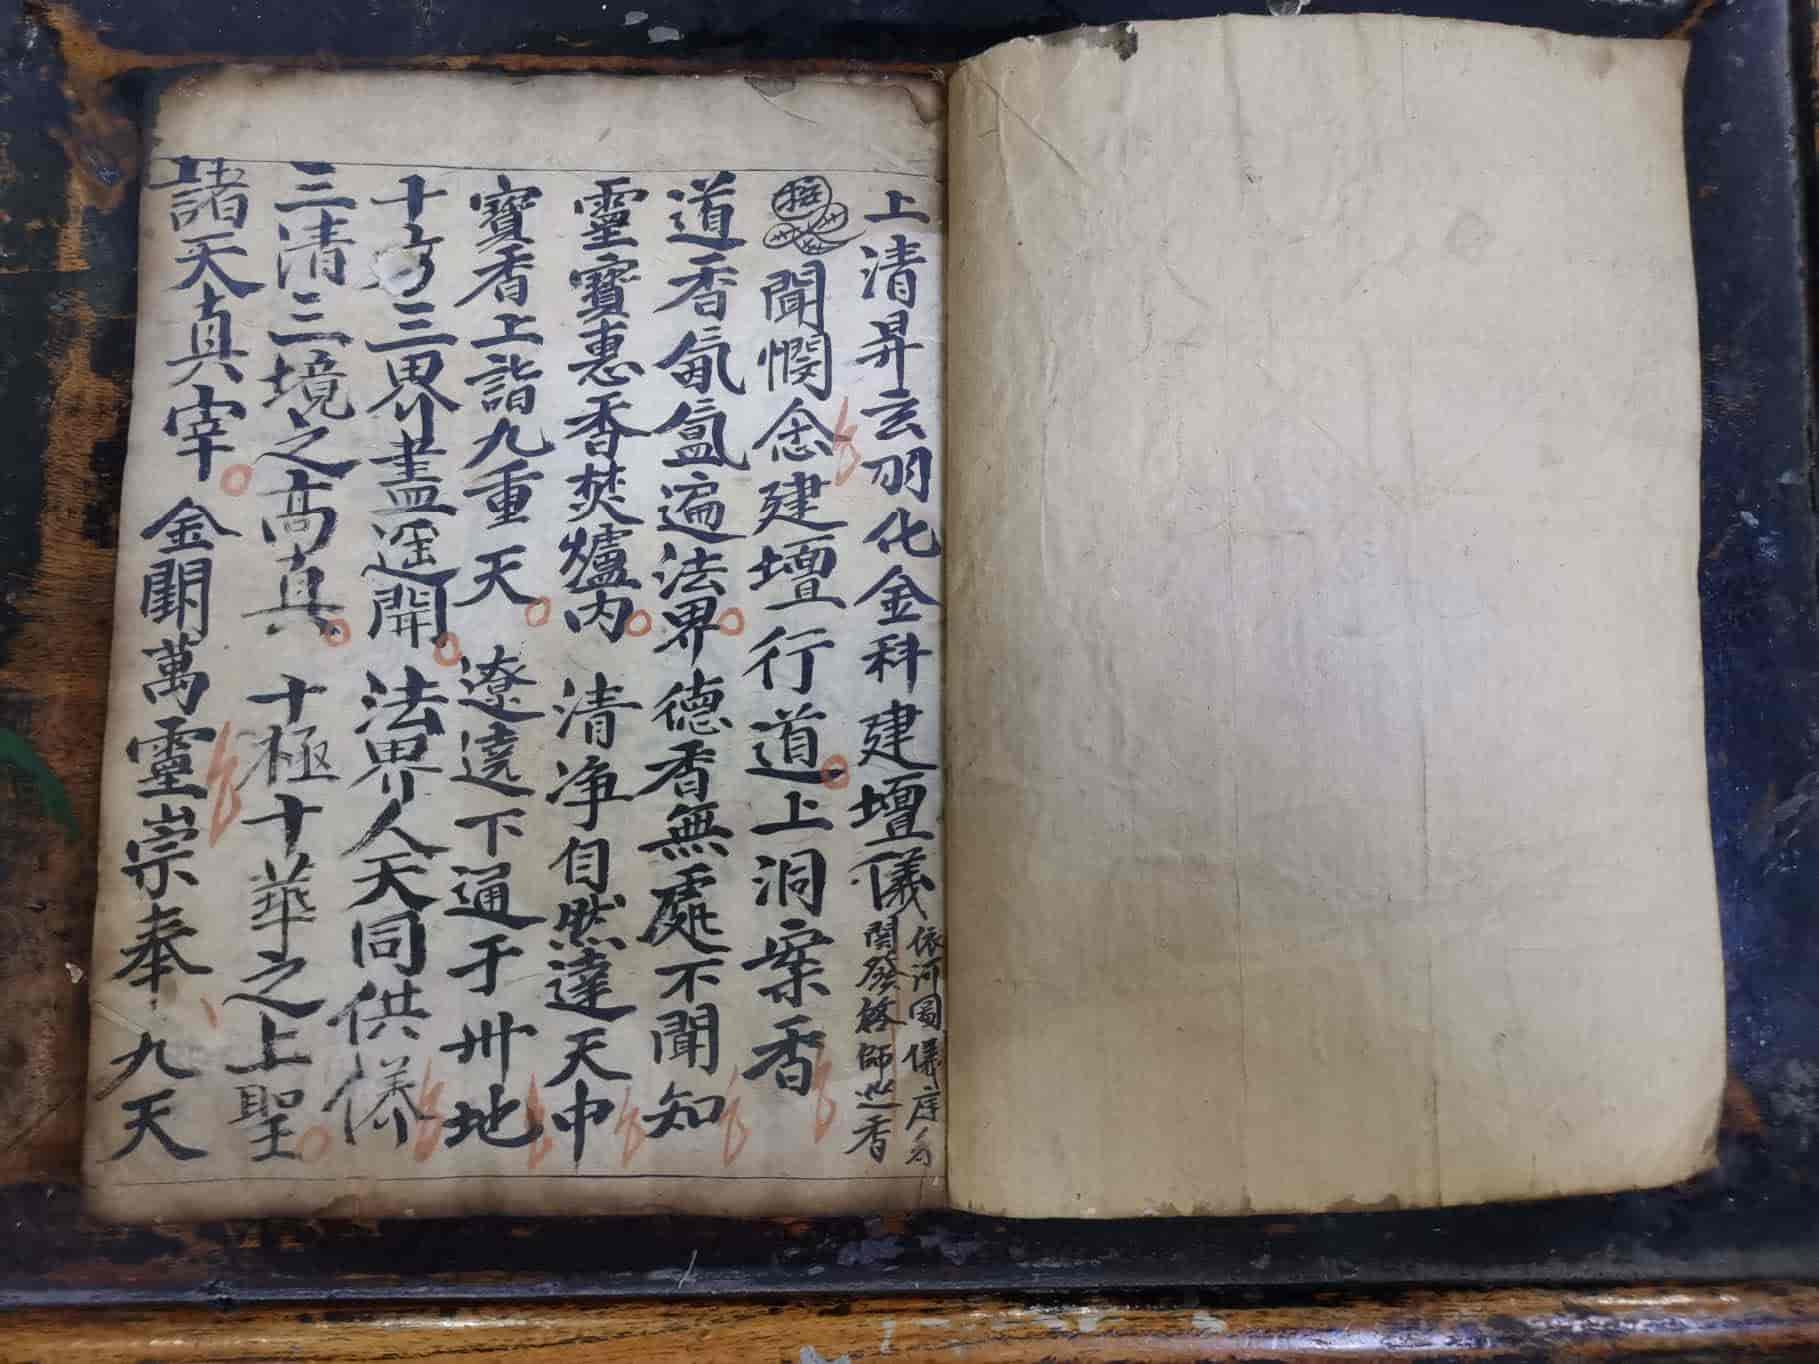 上清昇玄羽化金科建壇儀
依河圖儀序
関發符師巡香
聞憫念建壇行道上洞案香
道香氤氳遍法界德香無處不聞知
靈寶惠香焚爐内清净自然達天中
寶香上詣九重天遼遶下通于卅地
十方三界盡遥開法界人天同供養
三清三境之高真十極十華之上聖
諸天真宰金闕萬靈崇奉九天